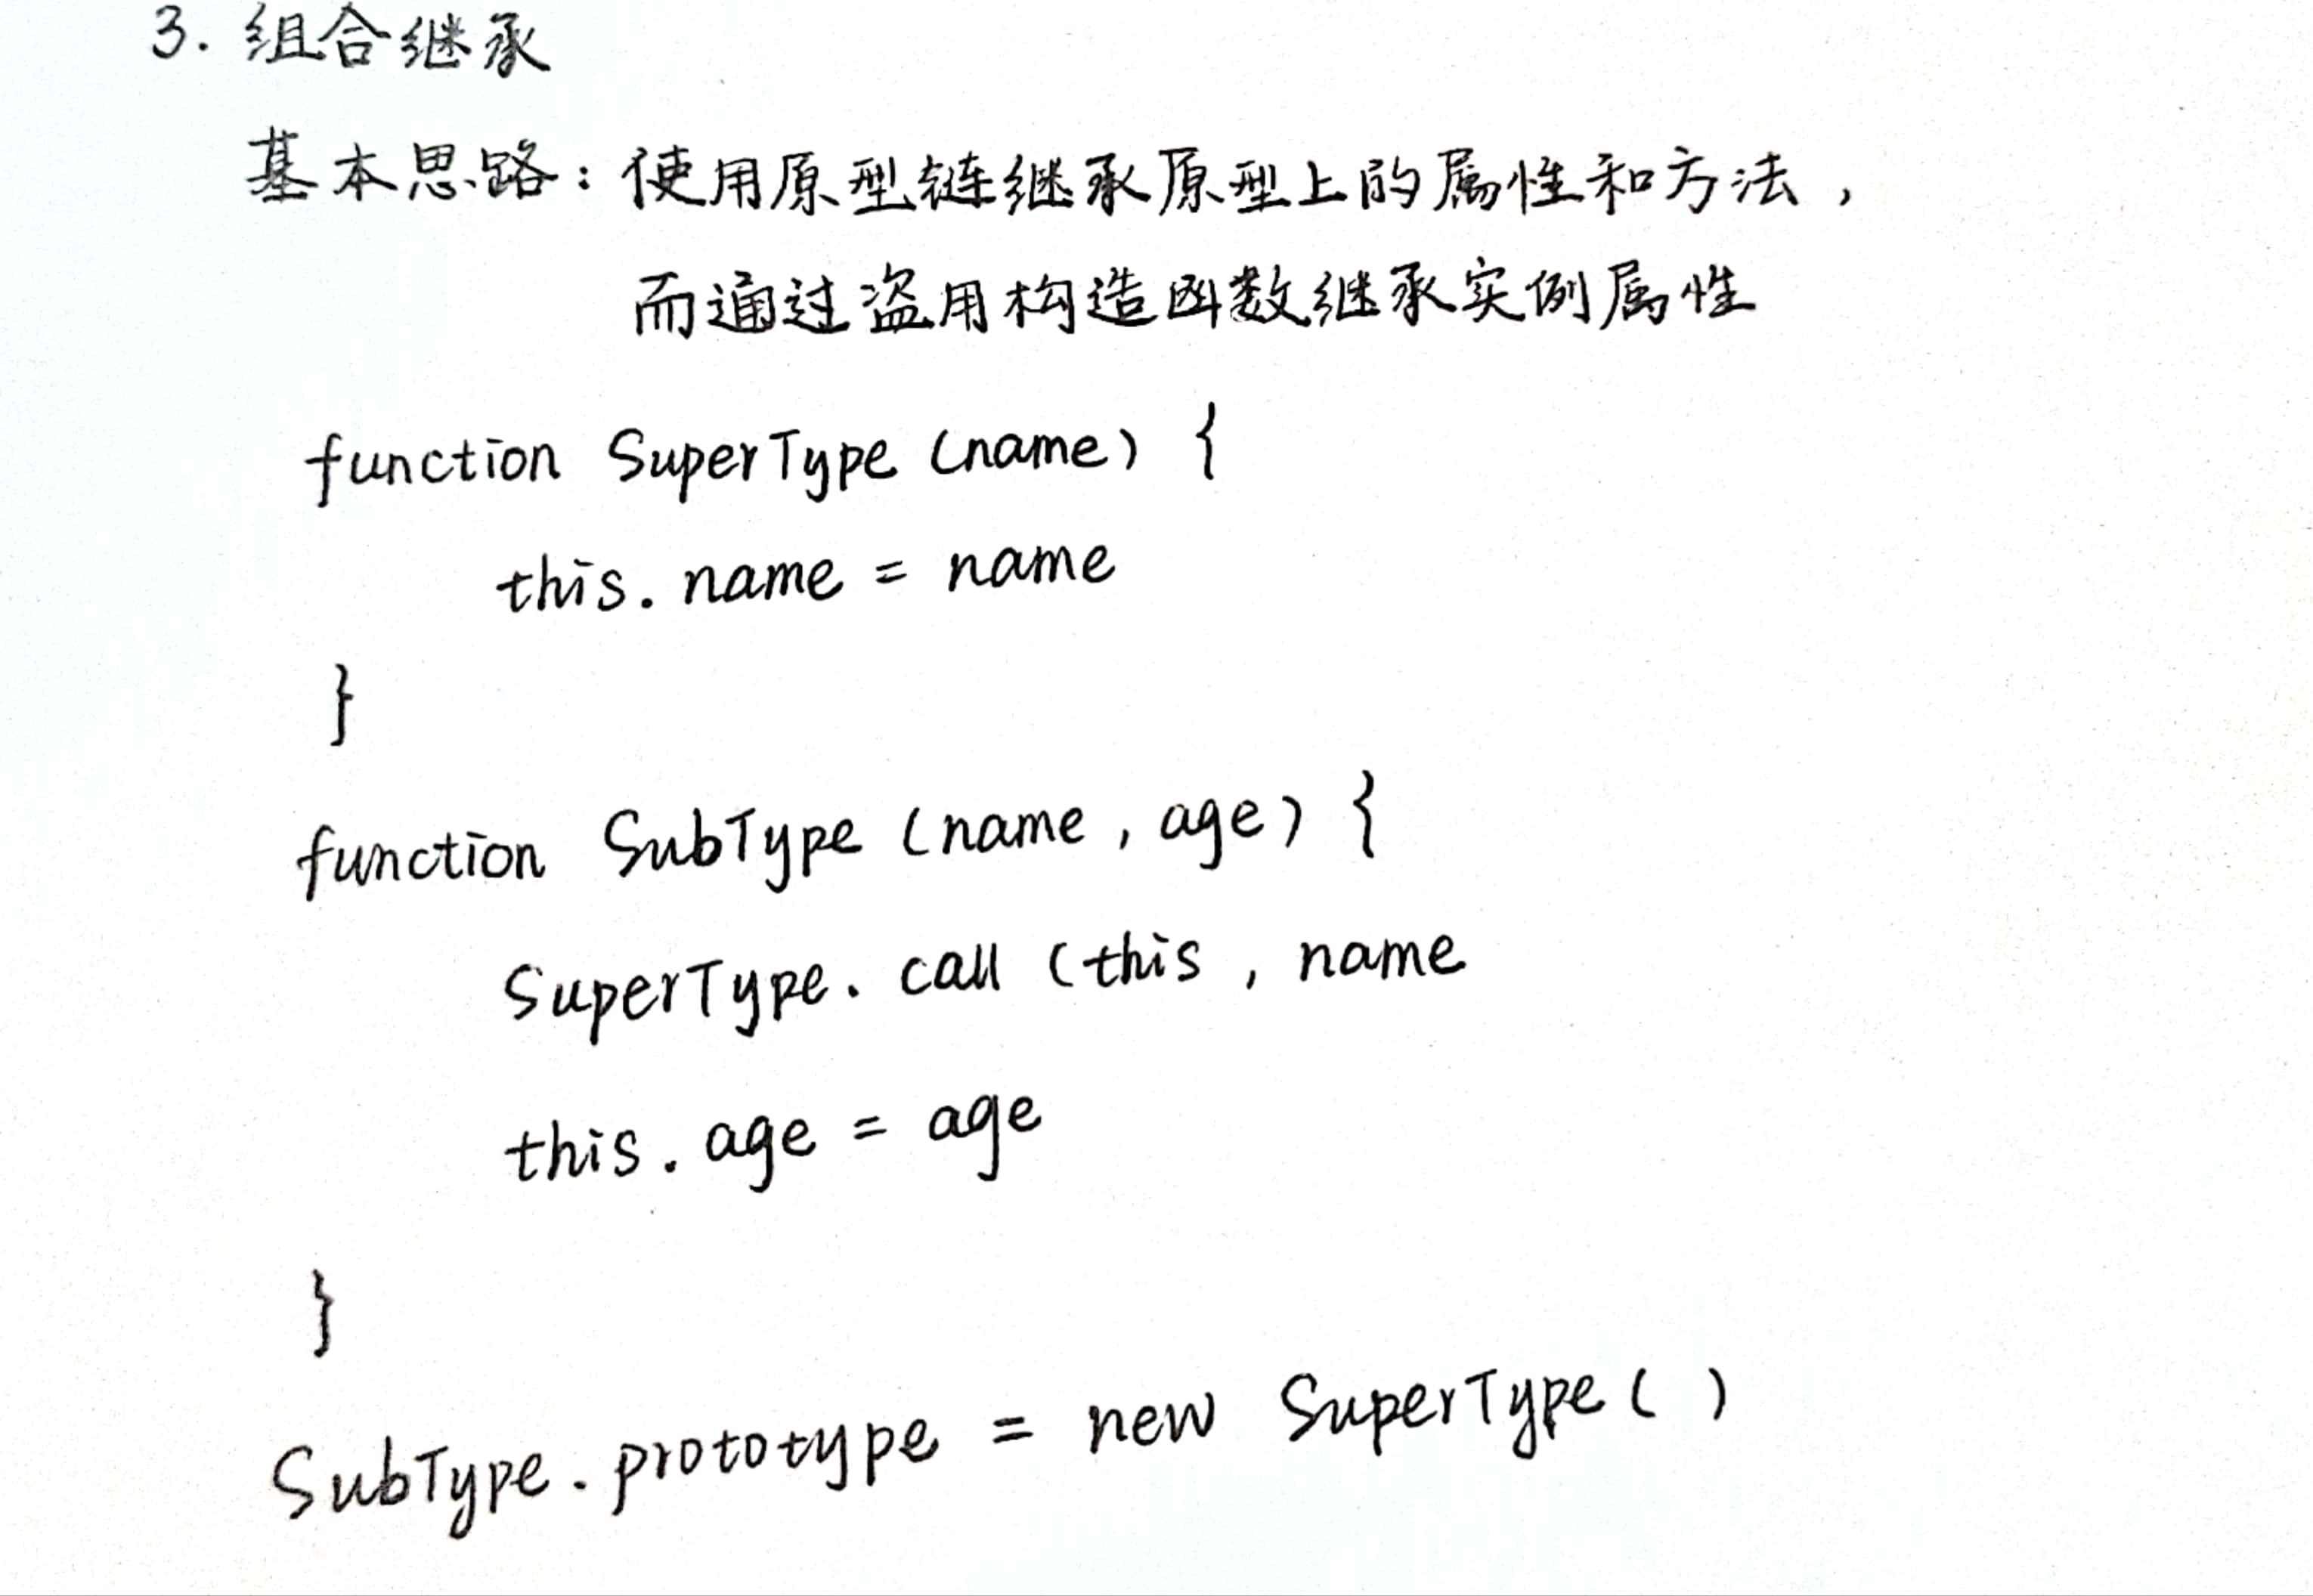 3. 组合继承
基本思路：使用原型链继承原型上的属性和方法，
而通过盗用构造函数继承实例属性
function SuperType (name) {
this. name = name
}
function SubType (name , age) {
SuperType. call (this , name
this. age = age
}
SubType. prototype = new SuperType ( )